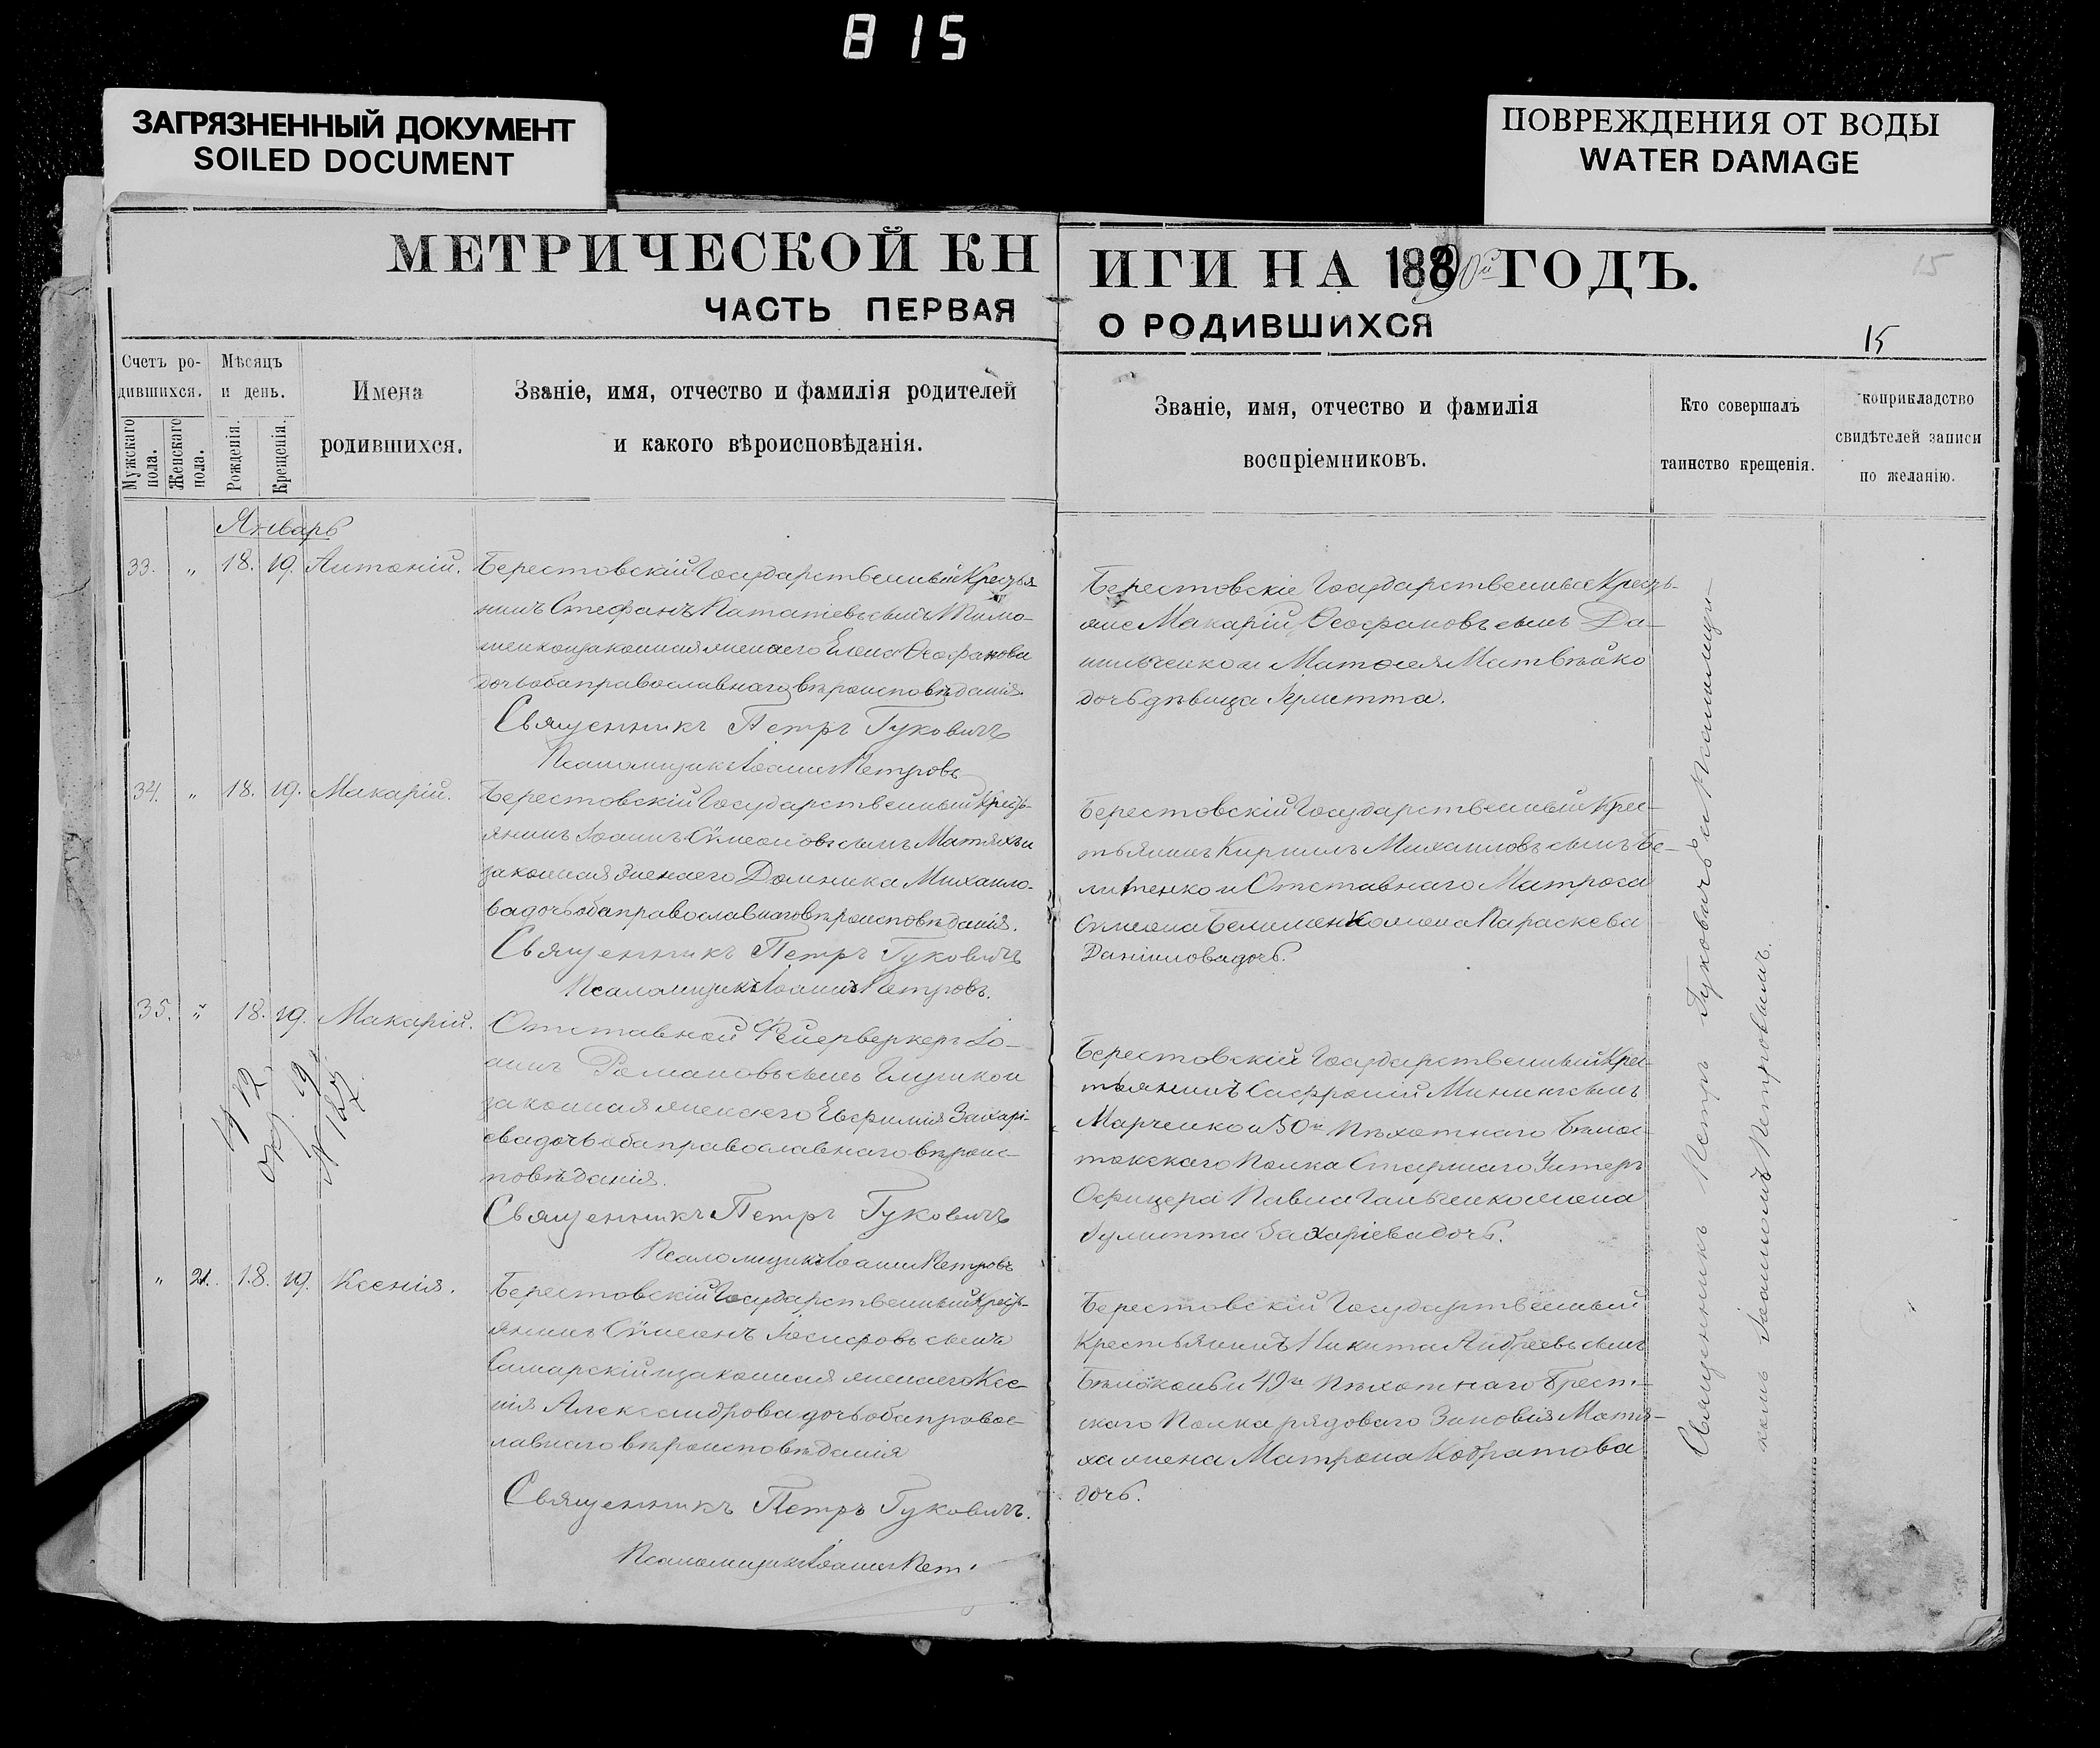 815
ЗАГРЯЗНЕННЫЙ ДОКУМЕНТ
SOILED DOCUMENT
ПОВРЕЖДЕНИЯ ОТ ВОДЫ
WATER DAMAGE
МЕТРИЧЕСКОЙ КНИГИ НА 1890й ГОДЪ.
15
ЧАСТЬ ПЕРВАЯ О РОДИВШИХСЯ
15
Счетъ родившихся.
Мужскаго пола.
Женскаго пола.
Мѣсяцъ и день.
Рожденія.
Крещенія.
Имена родившихся.
Званіе, имя, отчество и фамилія родителей
и какого вѣроисповѣданія.
Званіе, имя, отчество и фамилія
воспріемниковъ.
Кто совершалъ
таинство крещенія.
коприкладство
свидѣтелей записи
по желанію.
Январь
33. " 18. 19. Антоній.
Берестовскій Государственный Крестья
нинъ Стефанъ Ипатіевъ сынъ Тимо-
шенко и законная жена его Елена Ѳеофанова
дочь оба православнаго вѣроисповѣданія.
Священникъ Петръ Гуковичъ
Псаломщикъ Іоаннъ Петровъ
Берестовскіе Государственные Кресть-
яне Макарій Ѳеофановъ сынъ Да-
нильченко и
дочь дѣвица Іулитта.
34. " 18. 19. Макарій.
Берестовскій Государственный Кресть-
янинъ Іоаннъ Сѵмеоновъ сынъ Матяхъ и
законная жена его Домника Михаило-
ва дочь оба православнаго вѣроисповѣданія.
Священникъ Петръ Гуковичъ
Псаломщикъ Іоаннъ Петровъ.
Берестовскій Государственный Крес-
тьянинъ Кириллъ Михаиловъ сынъ Бе-
лименко и Отставнаго Матроса
Сѵмеона Белименко жена Параскева
Даніилова дочь.
35. " 18. 19. Макарій.
Отставной Фейерверкеръ Іо-
аннъ Романовъ сынъ и
законная жена его Евфимія Захарі-
ева дочь оба православнаго вѣроис-
повѣданія.
Священникъ Петръ Гуковичъ
Псаломщикъ Іоаннъ Петровъ
Берестовскій Государственный Крес-
тьянинъ Софроній Мининъ сынъ
Марченко и 50го Пѣхотнаго Бѣлос-
токскаго Полка Старшаго Унтеръ
Офицера Павла жена
Іулитта Захаріева дочь.
" 21. 18. 19. Ксенія.
Берестовскій Государственный Кресть-
янинъ Сѵмеонъ Іосифовъ сынъ
Самарскій и законная жена его Ксе-
нія Александрова дочь оба правос-
лавнаго вѣроисповѣданія
Священникъ Петръ Гуковичъ.
Псаломщикъ Іоаннъ Пет.
Берестовскій Государственный
Крестьянинъ Никита Андреевъ сынъ
Бѣлоконь и 49го Пѣхотнаго Брест-
скаго Полка рядоваго Зиновія Матя-
ха жена Матрона Кодратова
дочь.
Священникъ Петръ Гуковичъ съ Псаломщи-
комъ Іоанномъ Петровымъ.